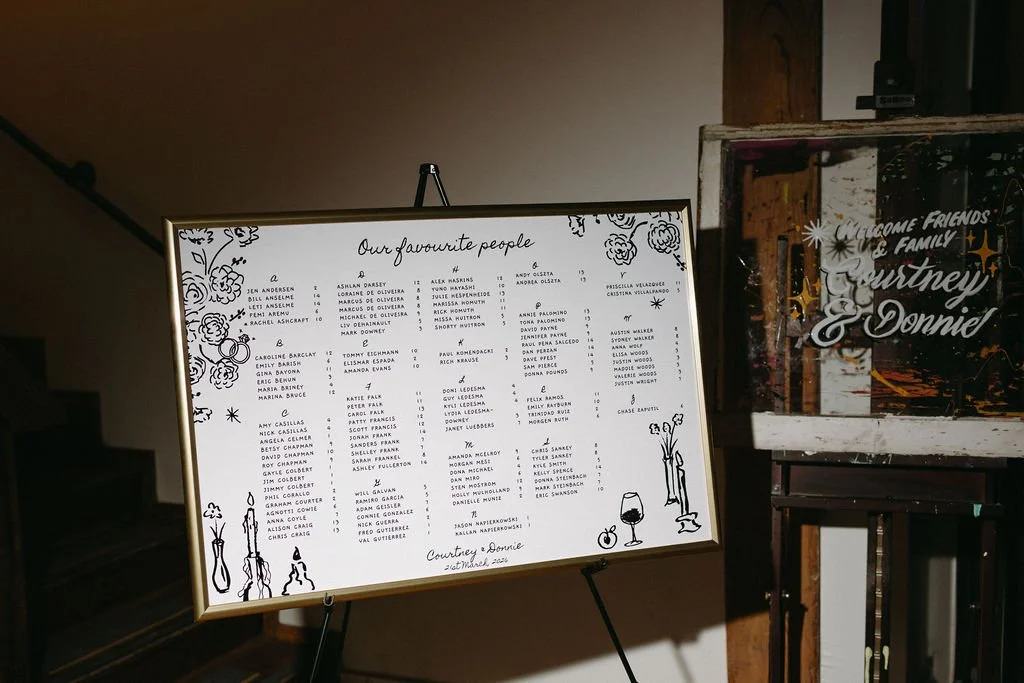 Our favourite people
A
JEN ANDERSEN 2
BILL ANSELME 14
LETI ANSELME 14
FEMI AREMU 6
RACHEL ASHCRAFT 10
B
CAROLINE BARCLAY 12
EMILY BARISH 6
GINA BAYONA 11
ERIC BEHUN 3
MARIA BRINEY 4
MARINA BRUCE 12
C
AMY CASILLAS
NICK CASILLAS
ANGELA CELMER
BETSY CHAPMAN
DAVID CHAPMAN
ROY CHAPMAN
GAYLE COLBERT
JIM COLBERT
JIMMY COLBERT
PHIL CORALLO
GRAHAM COURTER
AGNOTTI COWIE
ANNA COYLE
ALISON CRAIG 13
CHRIS CRAIG 13
D
ASHLAN DARSEY 12
LORAINE DE OLIVEIRA 8
MARCUS DE OLIVEIRA 8
MARCUS DE OLIVEIRA 8
MICHAEL DE OLIVEIRA 9
LIV DEHAINAULT 5
MARK DOWNEY 3
E
TOMMY EICHMANN 10
ELISMAR ESPADA 2
AMANDA EVANS 10
F
KATIE FALK 11
PETER FALK 11
CAROL FALK 13
PATTY FRANCIS 12
SCOTT FRANCIS 12
JONAH FRANK 14
SANDERS FRANK 7
SHELLEY FRANK 7
SARAH FRANKEL 8
ASHLEY FULLERTON 14
G
WILL GALVAN 5
RAMIRO GARCIA 5
ADAM GEISLER 7
CONNIE GONZALEZ 6
NICK GUERRA
FRED GUTIERREZ 1
VAL GUTIERREZ 1
H
ALEX HASKINS 2
YUNO HAYASHI 10
JULIE HESPENHEIDE 13
MARISSA HOMUTH 11
RICK HOMUTH 11
MISSA HUITRON 5
SHORTY HUITRON 5
K
PAUL KOMENDACKI 2
RICH KRAUSE 3
L
DONI LEDESMA 4
GUY LEDESMA 4
KYLI LEDESMA 4
LYDIA LEDESMA-
DOWNEY 3
JANEY LUEBBERS 7
M
AMANDA MCELROY 9
MORGAN MESI 6
DONA MICHAEL 4
DAN MIRO
STEN MOSTROM 12
HOLLY MULHOLLAND 9
DANIELLE MUNIZ 2
N
JASON NAPIERKOWSKI 1
KALLAN NAPIERKOWSKI 1
O
ANDY OLSZTA 13
ANDREA OLSZTA 13
P
ANNIE PALOMINO 13
TONA PALOMINO 13
DAVID PAYNE 9
JENNIFER PAYNE 9
PAUL PENA SALGEDO 14
DAN PERZAN 5
DAVE PFEST
SAM PIERCE
DONNA POUNDS 9
R
FELIX RAMOS 11
EMILY RAYBURN 10
TRINIDAD RUIZ 2
MORGEN RUTH 6
S
CHRIS SANKEY 8
TYLER SANKEY 8
KYLE SMITH
KELLY SPENCE 14
DONNA STEINBACH 7
MARK STEINBACH 7
ERIC SWANSON 10
V
PRISCILLA VELAZQUEZ 11
CRISTINA VILLALPANDO 5
W
AUSTIN WALKER 8
SYDNEY WALKER 8
ANNA WOLF
ELISA WOODS 3
JUSTIN WOODS 3
MADDIE WOODS
VALERIE WOODS 3
JUSTIN WRIGHT 7
Z
CHASE ZAPUTIL 6
Courtney & Donnie
21st March, 2026
WELCOME FRIENDS
& FAMILY
Courtney
& Donnie